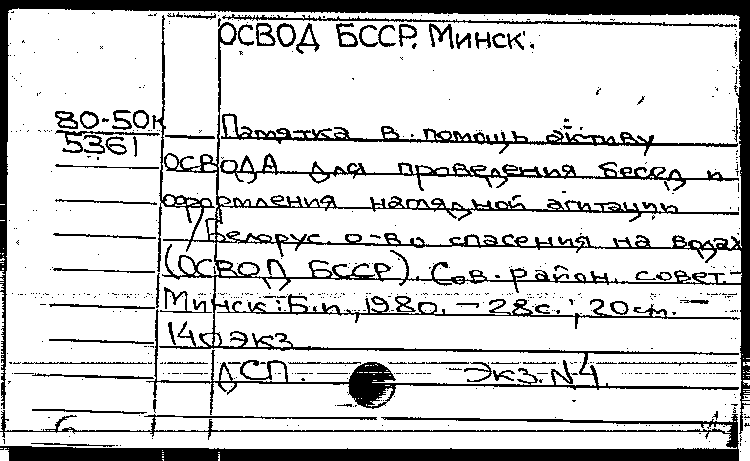 ОСВОД БССР. Минск.
80-50к
5361
Памятка в помощь активу
ОСВОДА для проведения бесед и
оформления наглядной агитации
/Белорус. о-во спасения на водах
(ОСВОД БССР). Сов. район. совет. -
Минск: Б.и., 1980. - 28с.; 20см. -
140экз
ДСП. Экз. №4.
6